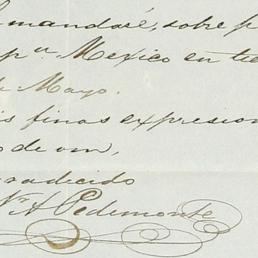 mandaré, sobre p
pª Mexico en tie
Mayo.
is finas expresion
o de vm,
radecido
A Pedemonte